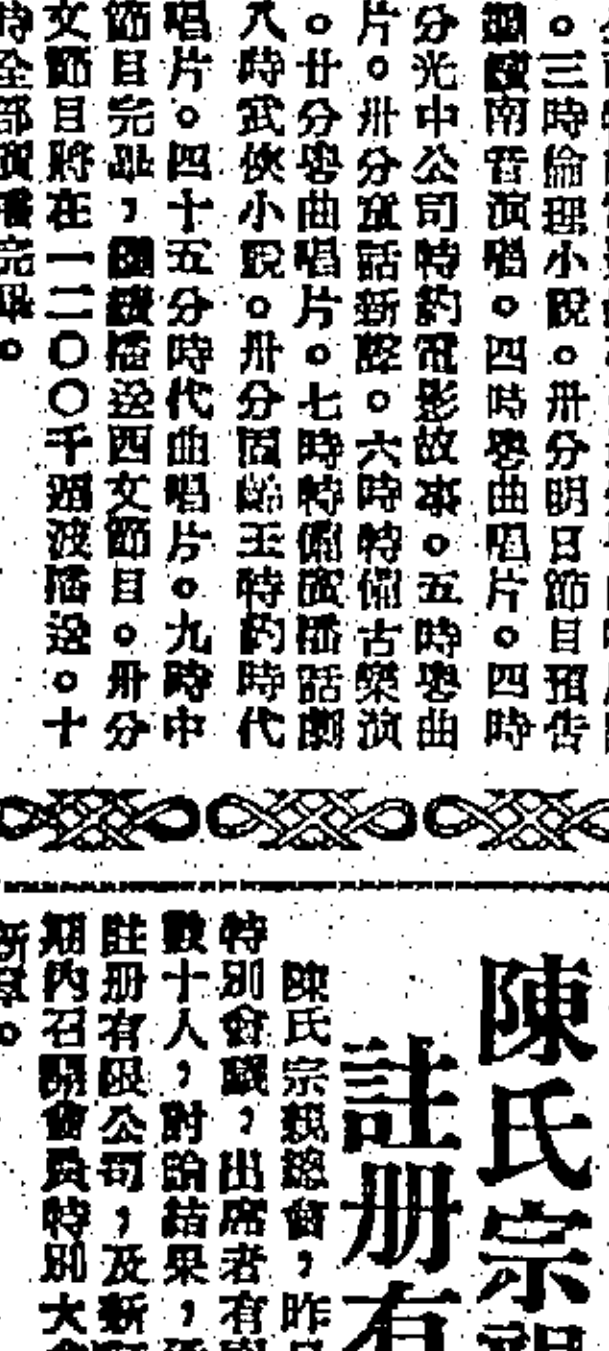 。三時倫理小說。卅分明日節目預告
南音演唱。四時粵曲唱片。四時
分光中公司特約電影故事。五時粵曲
片。卅分童話新聲。六時特備古樂演
。廿分粵曲唱片。七時特備廣播話劇
八時武俠小說。卅分周齡玉特約時代
唱片。四十五分時代曲唱片。九時中
節目完畢，繼續播送西文節目。卅分
文節目將在一二〇〇千週波播送。十
時全部廣播完畢。
陳氏宗親
註册有
陳氏宗親總會，昨
特別會議，出席者有
數十人，討論結果，
註册有限公司，及新
期內召開會員特別大會
新章。